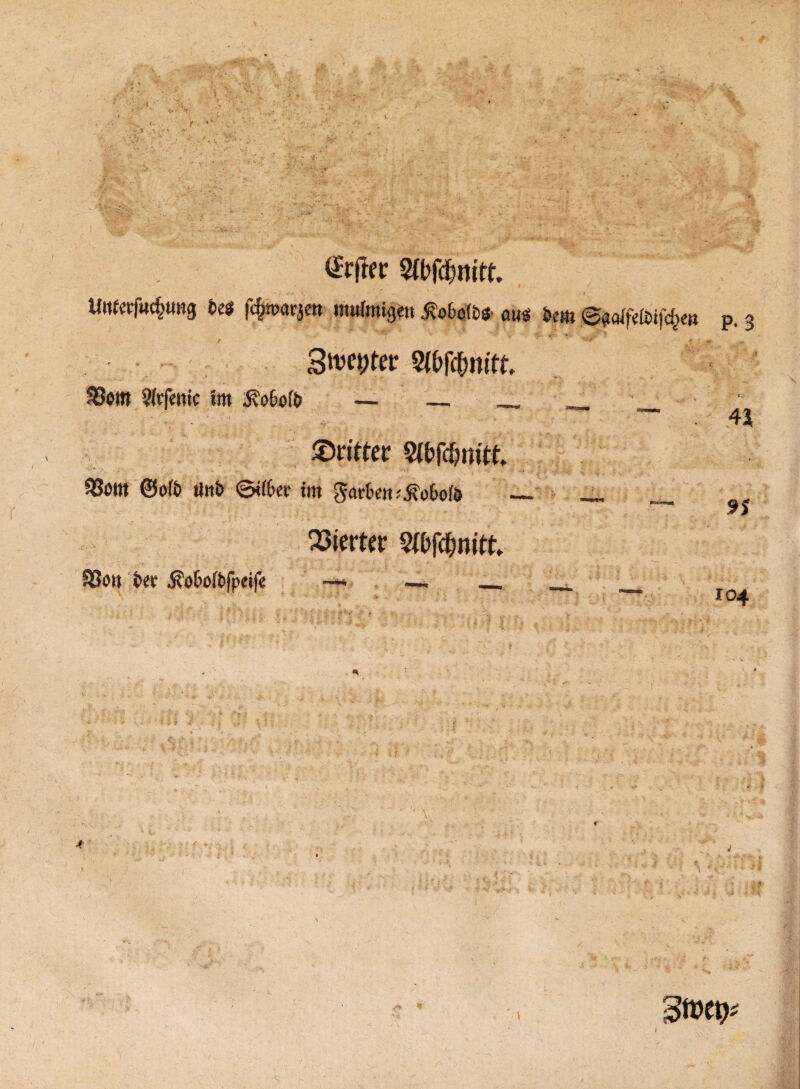 Erster Abschnitt.
Untersuchung des schwarzen mulmigen Kobolds aus dem Saalfeldischen p. 3
Zweyter Abschnitt.
Vom Arsenic im Kobold — — — — — 41
Dritter Abschnitt.
Vom Gold und Silber im Farben-Kobold — — — 95
Vierter Abschnitt.
Von der Koboldspeise — — — — — 104
Zwey-